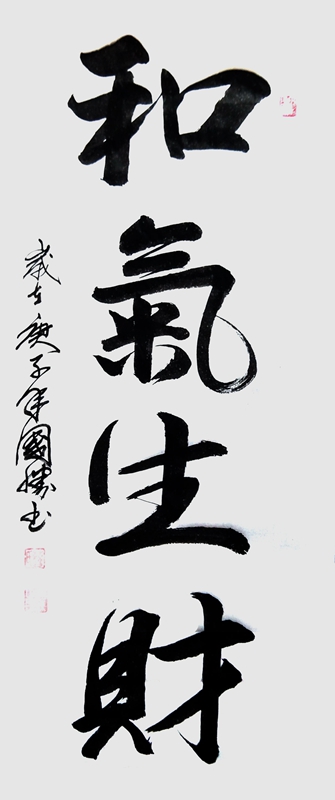 和氣生財
歲在庚子年國勝书